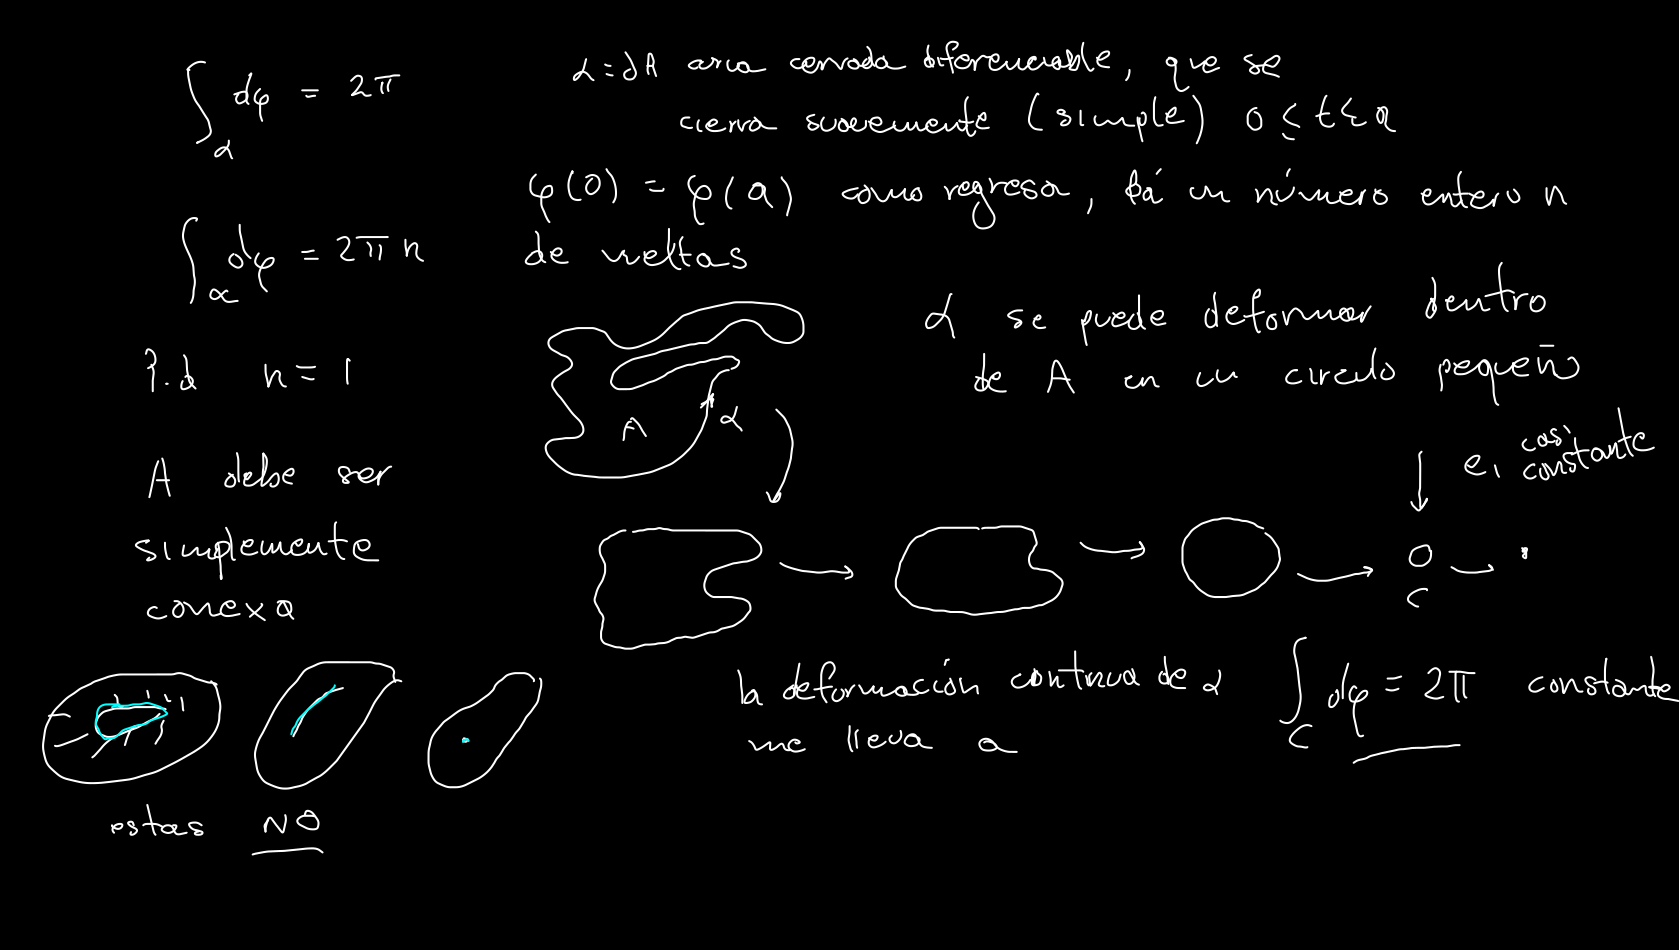 ∫_α dφ = 2π
α = ∂A area cerrada diferenciable, que se
cierra suavemente (simple) 0 ≤ t ≤ a
φ(0) = φ(a) como regresa, da un número entero n
de vueltas
∫_α dφ = 2π n
P.d n = 1
A debe ser
simplemente
conexa
A
α
α se puede deformar dentro
de A en un circulo pequeño
e₁ casi
constante
C
la deformación continua de α
me lleva a
∫_C dφ = 2π constante
estas NO